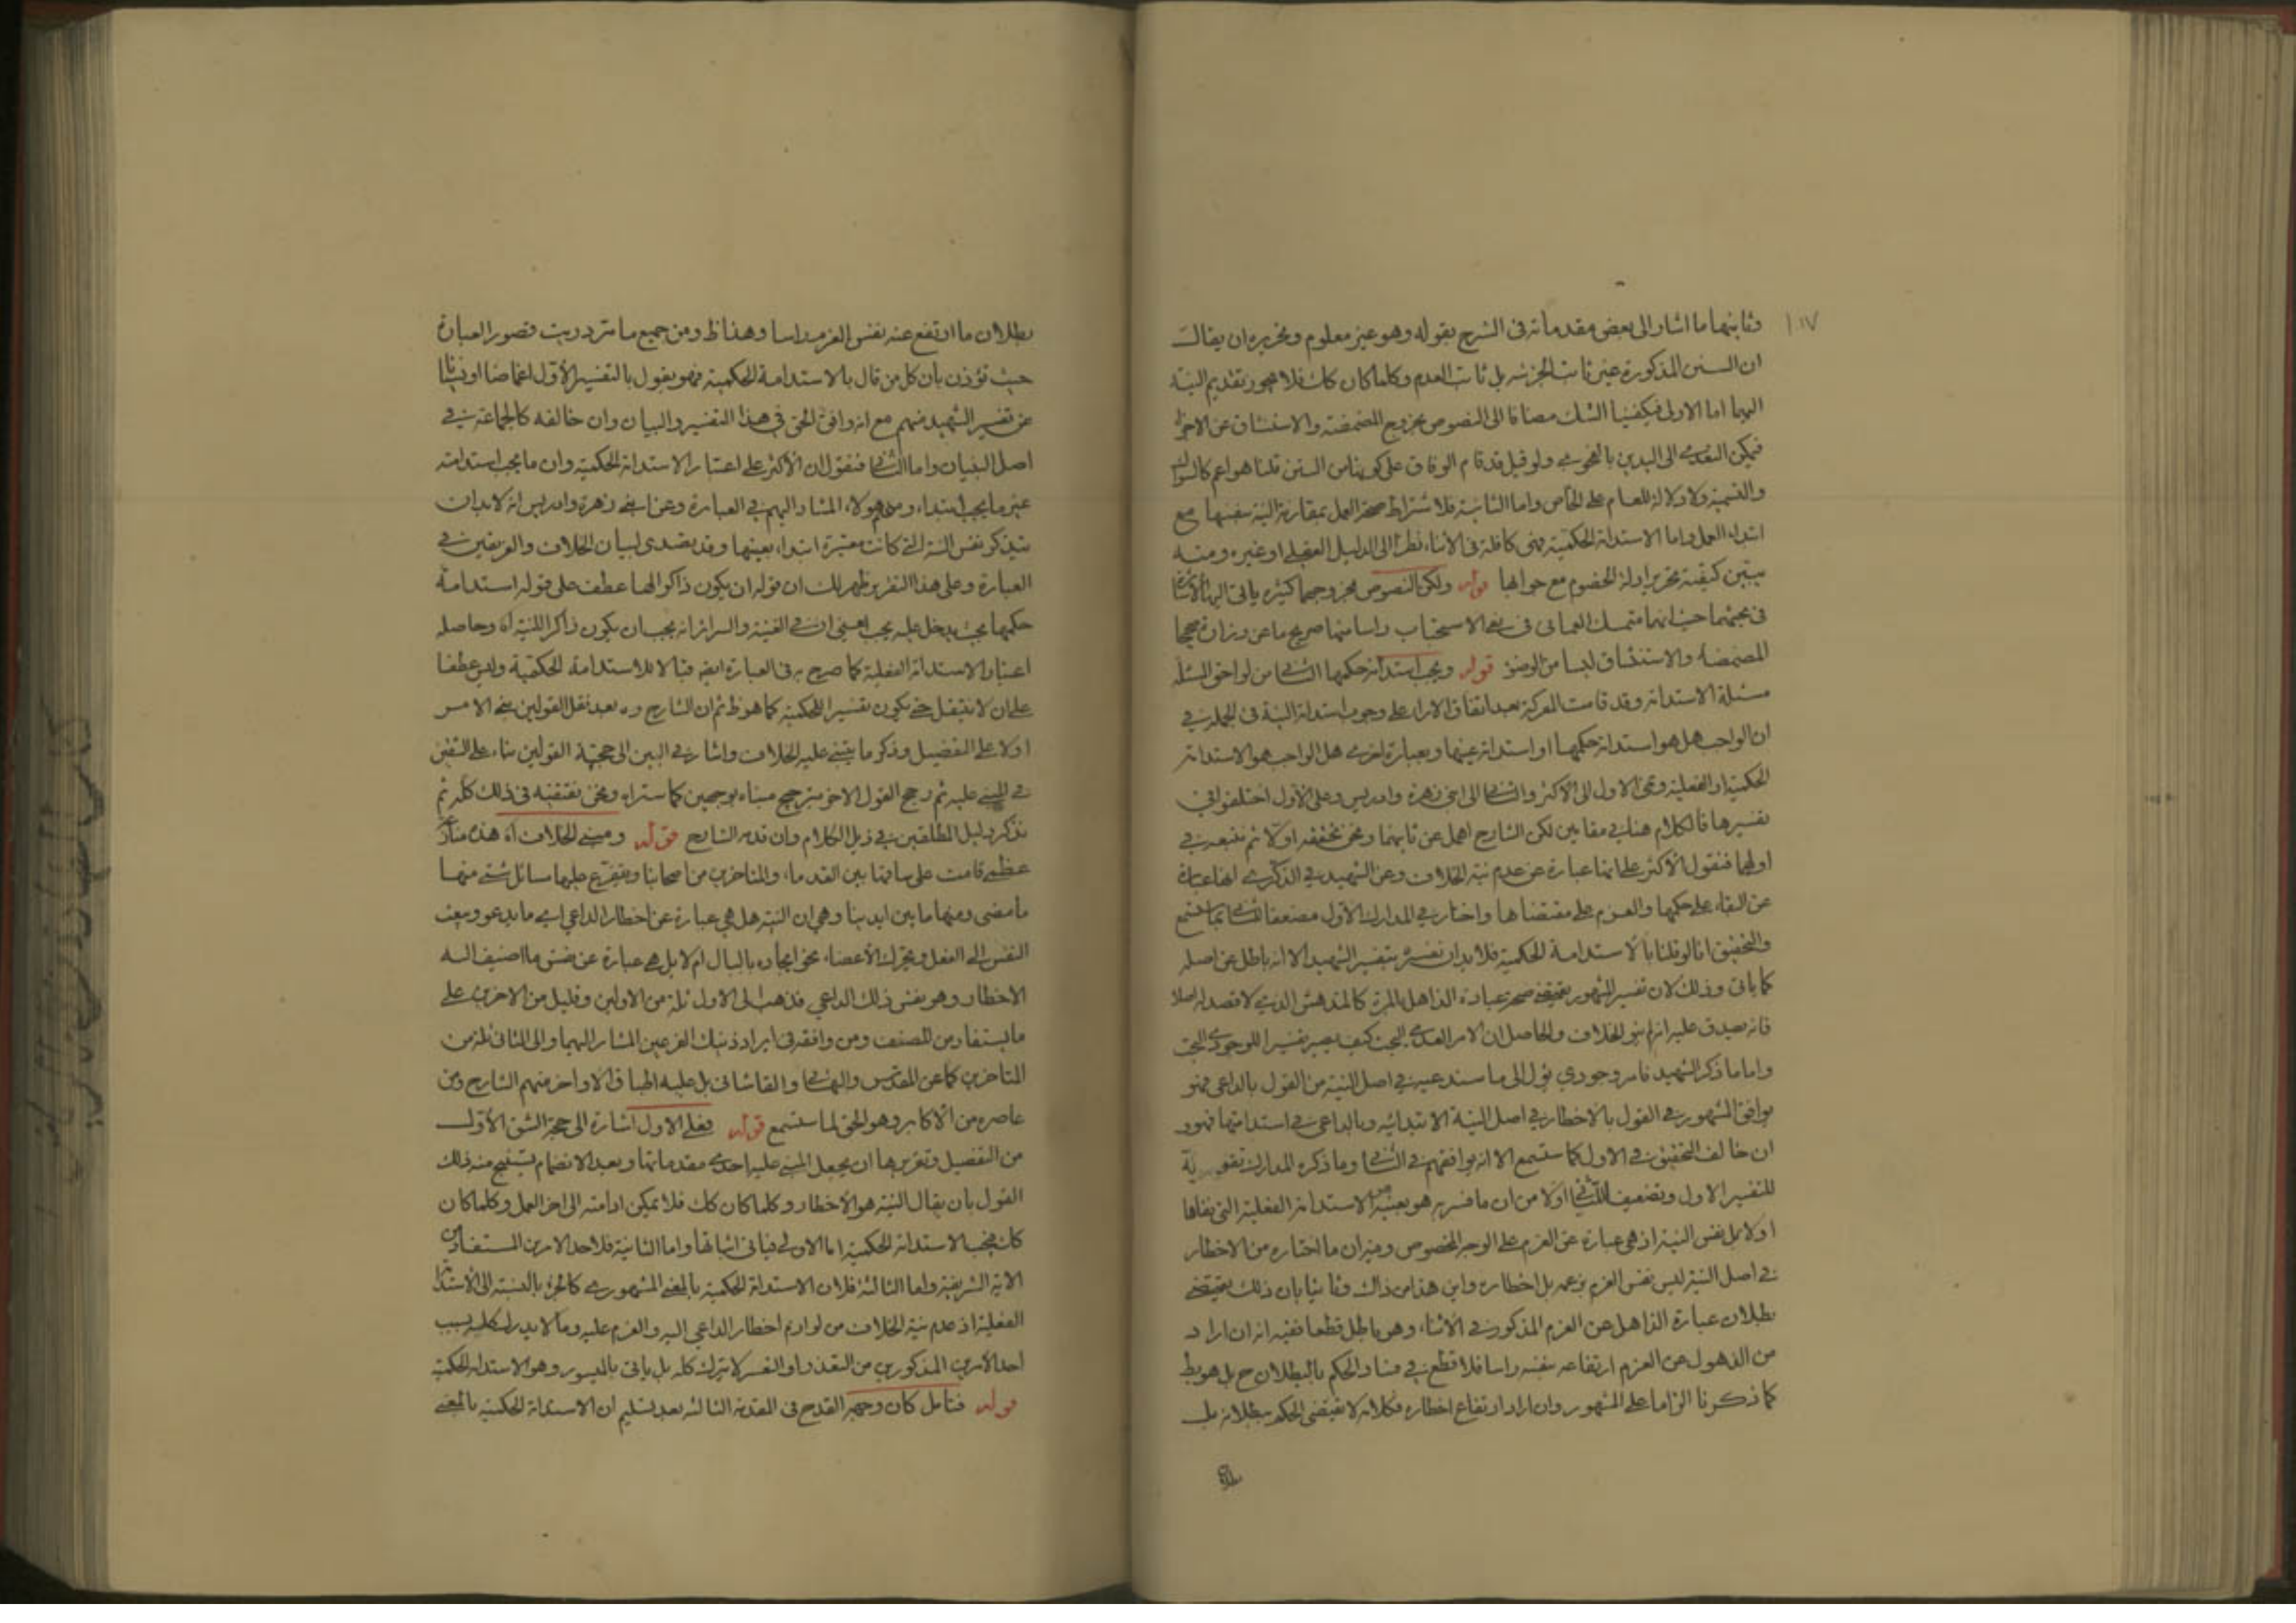 وثانيهما ما اشار الى بعض مقدماته فى الشرح بقوله وهو غير معلوم وتحريره ان يقال
ان السنن المذكورة غير ثابت الجزئيه بل ثابت العدم وكلما كان كك فلا يجوز تقديم النية
اليهما اما الاولى فيكفينا الشك مضافا الى النصوص بخروج المضمضة والاستنشاق عن الاجزاء
فيمكن التعدى الى اليدين بالفحوى ولو قيل قد قام الوفاق على كونها من السنن قلنا هو اعم كالسواك
والتسمية ولا دلالة للعام على الخاص واما الثانية فلاشتراط صحة العمل بمقارنة النية بنفسها مع
ابتداء العمل واما الاستدامة الحكمية فهى كافلة فى الاثناء نظرا الى الدليل العقلى او غيره ومنه
يتبين كيفية تحرير ادلة الخصوم مع جوابها قوله ولكن النصوص بخروجهما كثيرة ياتى اليها الاشارة
فى بحثهما حيث انهما متمسك العمانى فى نفى الاستحباب واسا منها صريح ما عن زرارة صحيحا
المضمضة والاستنشاق ليسا من الوضوء قوله ويجب استدامة حكمها الثانى من لواحق المسئلة
مسئلة الاستدامة وقد قامت المعركة بعد اتفاق الاراء على وجوب استدامة النية فى الجملة فى
ان الواجب هل هو استدامة حكمها او استدامة عينها وبعبارة اخرى هل الواجب هو الاستدامة
الحكمية او الفعلية وعزى الاول الى الاكثر والثانى الى ابنى زهرة وادريس وعلى الاول اختلفوا فى
تفسيرها فالكلام هنا فى مقامين لكن الشارح اهمل عن ثانيهما ونحن نحققه اولا ثم نتبعه فى
اولهما فنقول الاكثر على انها عبارة عن عدم نية الخلاف وعن الشهيد فى الذكرى انها عبارة
عن البقاء على حكمها والعزم على مقتضاها واختار فى المدارك الاول مضعفا للثانى بما ستسمع
والتحقيق انا لو قلنا بالاستدامة الحكمية فلابد ان نفسره بتفسير الشهيد الا انه باطل عن اصله
كما ياتى وذلك لان تفسير المشهور يقتضى صحة عبادة الذاهل بالمرة كالمندهش الذى لا قصد له اصلا
فانه يصدق عليه انه لم ينو الخلاف والحاصل ان الامر العدمى البحت كيف يصير تفسيرا للوجودى البحت
واما ما ذكر الشهيد فامر وجودي يؤل الى ما سندعيه فى اصل النية من القول بالداعى فهو
يوافق المشهور فى القول بالاخطار فى اصل النية الابتدائيه وبالداعى فى استدامتها فهو
ان خالف التحقيق فى الاول كما ستسمع الا انه يوافقهم فى الثانى وما ذكره المدارك تقوية
للتفسير الاول وتضعيف الثانى اولا من ان ما فسر به هو بعينه الاستدامة الفعلية التى نفاها
اولا بل نفس النية اذ هى عبارة عن العزم على الوجه المخصوص وفيه ان ما اختاره من الاخطار
فى اصل النية ليس نفس العزم بزعمه بل اخطاره واين هذا من ذاك وثانيا بان ذلك يقتضى
بطلان عبادة الذاهل عن العزم المذكور فى الاثناء وهو باطل قطعا ففيه انه ان اراد
من الذهول عن العزم ارتفاعه بنفسه راسا فلا قطع فى فساد الحكم بالبطلان ح بل هو يط
كما ذكرنا الزاما على المشهور وان اراد ارتفاع اخطاره فكلامه لا يقتضى الحكم ببطلانه بل
بطلان
بطلان ما ارتفع عنه نفس العزم راسا وهذا ظ ومن جميع ما مر دريت قصور العبارة
حيث تؤذن بان كل من قال بالاستدامة الحكمية فهو يقول بالتفسير الاول اغماضا او نسيانا
عن تفسير الشهيد منهم مع انه وافق الحق فى هذا التفسير والبيان وان خالفه كالجماعة فى
اصل البنيان واما الثانى فنقول ان الاكثر على اعتبار الاستدامة الحكمية وان ما يجب استدامته
غير ما يجب ابتداء ومنهم هولاء المشار اليهم فى العبارة وعن ابنى زهرة وادريس انه لابد ان
يتذكر نفس النية التى كانت معتبرة ابتداء بعينها وقد تصدى لبيان الخلاف والفريقين فى
العبارة وعلى هذا التقرير ظهر لك ان قوله ان يكون ذاكرا لها عطف على قوله استدامة
حكمها بحيث يدخل عليه يجب اعنى ان فى الغنية والسرائر انه يجب ان يكون ذاكرا للنية اه وحاصله
اعتبار الاستدامة الفعلية كما صرح به فى العبارة ايضا قبالا للاستدامة الحكمية وليس عطفا
على ان لا ينتقل حتى يكون تفسيرا للحكمية كما هو ظ ثم ان الشارح ره بعد نقل القولين فى الامر
اولا على التفصيل وذكر ما يبتنى عليه الخلاف واشار فى البين الى حجية القولين بناء على الشقين
فى المبنى عليه ثم رجح القول الاخر بترجيح مبناه بوجهين كما ستراه ونحن نقتفيه فى ذلك كله ثم
نذكر دليل المطلقين فى ذيل الكلام وان قدمه الشارح قوله ومبنى الخلاف اه هذه منازعة
عظمى قامت على ساقها بين القدماء والمتاخرين من اصحابنا ويتفرع عليها مسائل شتى منها
ما مضى ومنها ما بين ايدينا وهى ان النية هل هى عبارة عن اخطار الداعي اى ما يدعو ويبعث
النفس الى الفعل ويحرك الاعضاء نحو ايجاده بالبال ام لا بل هى عبارة عن نفس ما اضيف اليه
الاخطار وهو نفس ذلك الداعي فذهب الى الاول ثلة من الاولين وقليل من الاخرين على
ما يستفاد من المصنف ومن وافقه فى ايراد ذينك الفرعين المشار اليهما والى الثانى ثلة من
المتاخرين كما عن المقدس والبهائى والقاشانى بل عليه اطباق الاواخر منهم الشارح ومن
عاصره من الاكابر وهو الحق لما ستسمع قوله فعلى الاول اشارة الى حجة الشق الاول
من التفصيل وتقريرها ان يجعل المبنى عليه احدى مقدماتها وبعد الانضمام يستنتج منه ذلك
القول بان يقال النية هو الاخطار وكلما كان كك فلا يمكن ادامته الى اخر العمل وكلما كان
كك فيجب الاستدامة الحكمية اما الاولى فياتى اثباتها واما الثانية فلاحد الامرين المستفاد من
الاية الشريفة واما الثالثة فلان الاستدامة الحكمية بالمعنى المشهورى كالجزء بالنسبة الى الاستدامة
الفعلية اذ عدم نية الخلاف من لوازم اخطار الداعي اليه والعزم عليه وما لا يدرك كله بسبب
احد الامرين المذكورين من التعذر او التعسر لا يترك كله بل ياتى بالميسور وهو الاستدامة الحكمية
قوله فتامل كان وجهه القدح فى المقدمة الثالثة بعد تسليم ان الاستدامة الحكمية بالمعنى